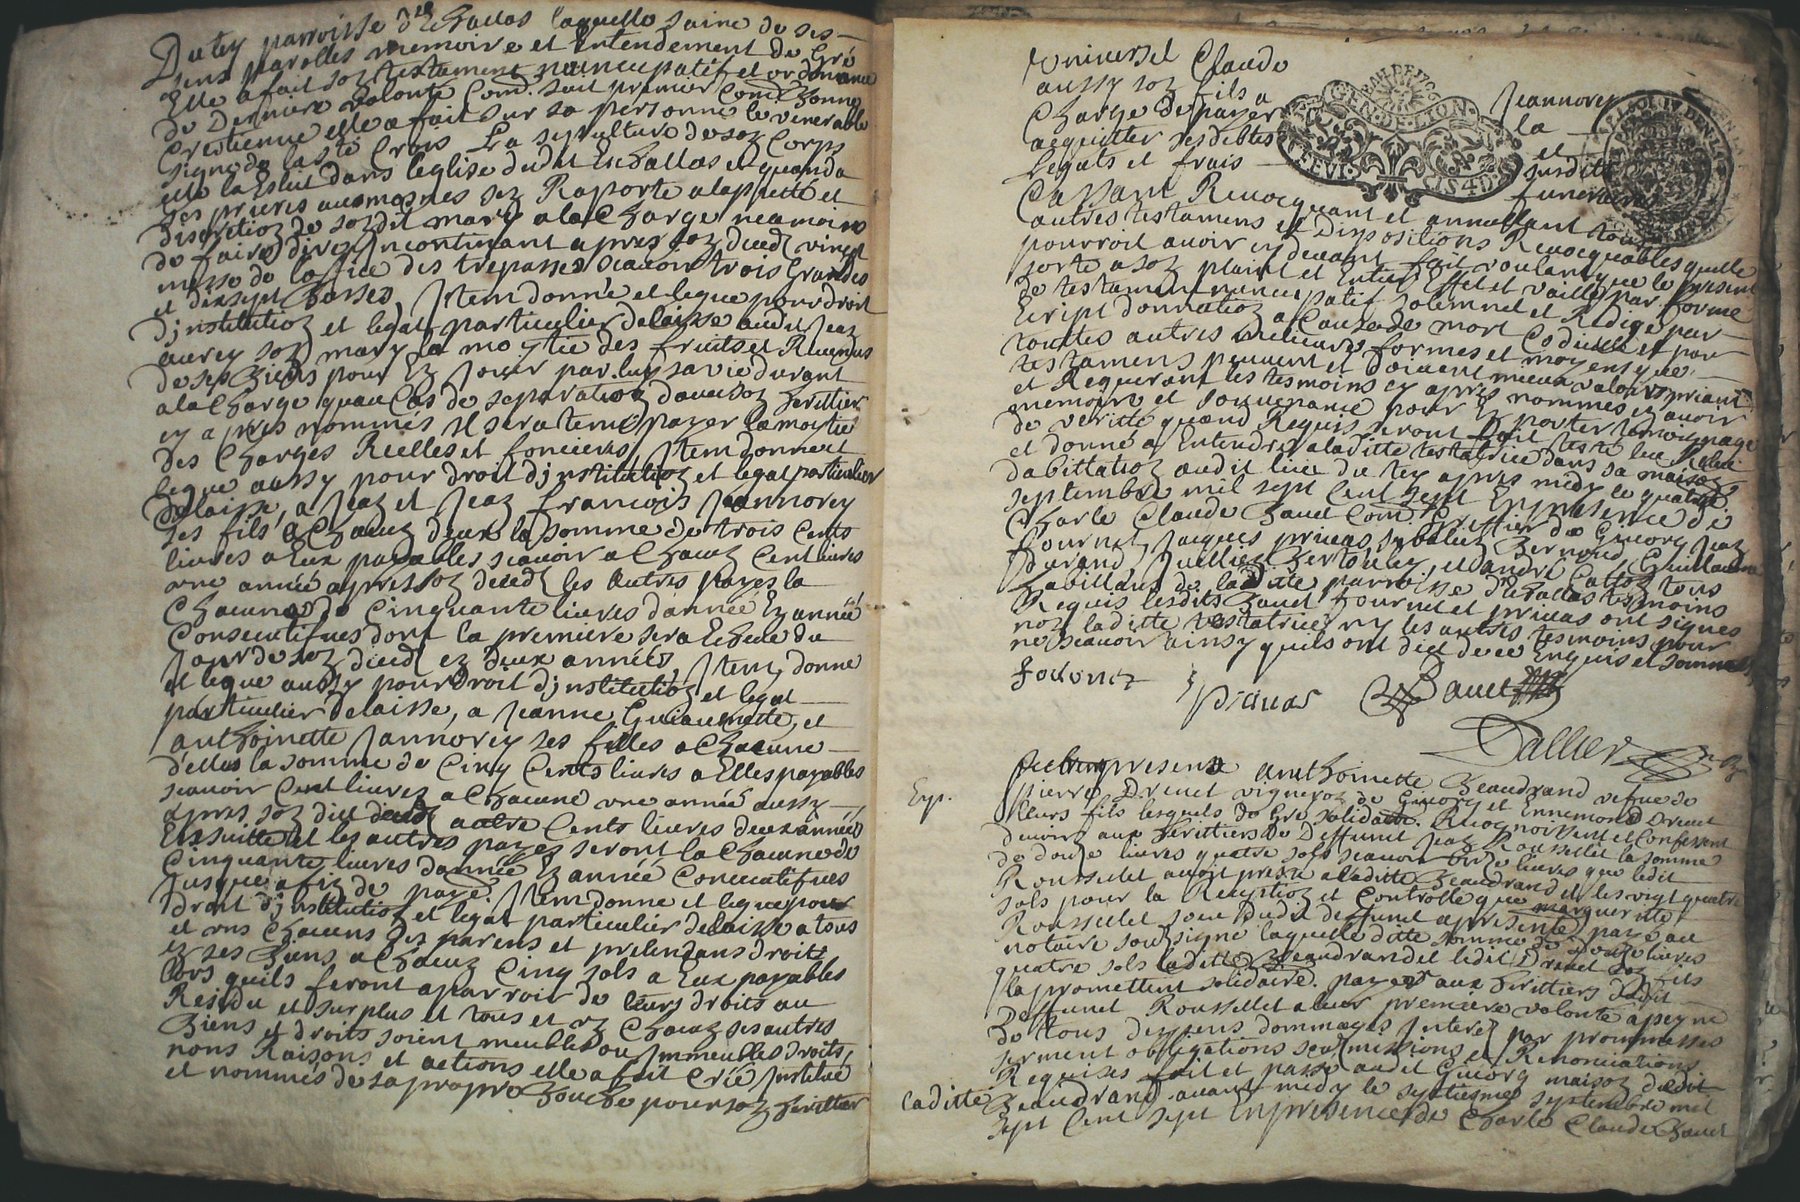 Dutey parroisse d'Echallas laquelle saine de ses
sens parolles memoire et Entendement de Gré
Elle a fait son testament nuncupatif et ordonnance
de Derniere volonté Comme suit premier Comme bonne
Crestienne elle a fait sur sa personne le venerable
signe de la ste Croix La sepulture de son Corps
elle la Eslit dans leglise dudit Eschallas et quand a
ses prieres aumosnes sen Raporte a la pietté et
discretion de sondit mary a la Charge neamoins
de faire dire Incontinant apres son deceds vingt
messe de loffice des trepasses scauoir trois Grandes
et dixsept basses, Item donne et legue pour droit
dinstitution et legat particulier delaisse audit Jean
aurey son mary la moytié des fruits et Reuenus
de ses biens pour En Jouir par luy sa vie durant
a la Charge quau Cas de separation dauec son heritier
cy apres nommés Il sera tenu payer la moytié
des Charges Reelles et foncieres, Item donne et
legue aussy pour droit dinstitution et legat particulier
delaisse, a Jean et Jean francois Jeannorey
ses fils a Chacun deux la somme de trois Cents
liures a Eux payables scauoir a Chacun Cent liures
vne année apres son deceds les autres payes la
Chacune de Cinquante liures dannée En année
Consecutifues dont la premiere sera Echeue du
Jour de son deceds en deux années, Item donne
et legue aussy pour droit dinstitution et legat
particulier delaisse, a Jeanne Guiaumette, et
anthoinette Jannorey ses filles a Chacune
delles la somme de Cinq Cents liures a Elles payables
scauoir Cent liures a Chacune vne année aussy
apres son dit deceds autre Cents liures deux années
Ensuitte et les autres payes seront la Chacune de
Cinquante liures dannée En année Consecutifues
Jusques a fin de paye. Item donne et legue pour
droit dinstitution et legat particulier delaisse a tous
et vns Chacuns ses parens et pretendans droits
en ses biens a Chacun Cinq sols a Eux payables
lors quils feront aparroir de leurs droits au
Residu et surplus et tous et vn Chacun ses autres
biens et droits soient meubles ou Immeubles droits,
noms Raisons et actions elle a fait Créé Institué
et nommés de sa propre bouche pour son heritier
vniuersel Claude Jeannorey
aussy son fils a la
Charge de payer et
acquitter ses debtes susdits
legats et frais funeraires
GEN. DE LION.
1540
Cassant Reuocquant et annullant tous
autres testamens et Dispositions Reuocquables quelle
pourroit auoir cy deuant fait voulant que le present
sorte a son plain et Entier Effet et vaille par forme
de testament nuncupatif solemnel et Redigé par
Ecript donnation a Cause de mort Codicille et par
touttes autres meilleures formes et moyens que
testamens peuuent et doiuent mieux valoir priant
et Requerant les tesmoins cy apres nommés en auoir
memoire et souuenance pour En porter temoignage
de verité quand Requis seront fait testé leu Releu
et donné a Entendre a laditte testatrice dans sa maison
dabittation audit lieu du tey apres midy le quatre
septembre mil sept Cent sept En presence de
Charle Claude Bauet Comis Greffier de Giuors, Jean
fournet, Jacques priuas, Bernoud, Guillaume
Durand, Jullien Bertouley, et andré Catton tous
habittans de laditte parroisse d'Echallas tesmoins
Requis lesdits Bauet fournet et priuas ont signés
non laditte testatrice ny les autres tesmoins pour
ne scauoir ainsy quils ont dit de ce Enquis et sommés
fournet priuas Bauet
Dallier
Exp.
presens anthoinette Beaudrand vefue de
pierre Dreuet vigneron de Giuors et Ennemond Dreuet
leurs fils lesquels de Gré solidaire. Recognoissent et Confessent
deuoir aux heritiers de Deffunct Jean Rousselet la somme
de douze liures quatre sols scauoir onze liures que ledit
Rousselet auoit presté a laditte Beaudrand et les vingt quatre
sols pour la Reception et Controlle que marguerite
Rousselet soeur dudit deffunct a presenté payé au
notaire soussigné laquelle ditte somme de douze liures
quatre sols laditte Beaudrand et ledit Dreuet son fils
la promettent solidaire. payer aux heritiers dudit
Deffunct Rousselet a leur premiere volonté a peyne
de tous despens dommages Interes par promesses
serment obligations soubmissions et Renonciations
Requises fait et passé audit Giuors maison de
laditte Beaudrand auant midy le septiesme septembre mil
sept Cent sept En presence de Charle Claude Bauet